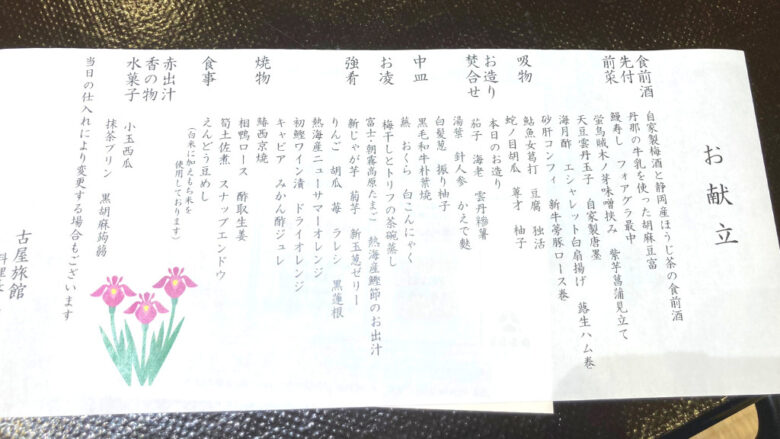 お献立
食前酒
自家製梅酒と静岡産ほうじ茶の食前酒
先付
丹那の牛乳を使った胡麻豆富
前菜
鰻寿し フォアグラ最中
蛍烏賊木ノ芽味噌挟み 紫芋菖蒲見立て
天豆雲丹玉子 自家製唐墨
海月酢 エシャレット白扇揚げ 蕗生ハム巻
砂肝コンフィ 新牛蒡豚ロース巻
吸物
鮎魚女葛打 豆腐 独活
蛇ノ目胡瓜 蓴才 柚子
お造り
本日のお造り
焚合せ
茄子 海老 雲丹摻薯
湯葉 針人参 かえで麩
白髪葱 振り柚子
中皿
黒毛和牛朴葉焼
蕪 おくら 白こんにゃく
お凌
梅干しとトリフの茶碗蒸し
富士・朝霧高原たまご 熱海産鰹節のお出汁
強肴
新じゃが芋 菊芋 新玉葱ゼリー
りんご 胡瓜 苺 ラレシ 黒蓮根
熱海産ニューサマーオレンジ
初鰹ワイン漬 ドライオレンジ
キャビア みかん酢ジュレ
焼物
鰆西京焼
相鴨ロース 酢取生姜
筍土佐煮 スナップエンドウ
食事
えんどう豆めし
(白米に加えもち米を
使用しております)
赤出汁
香の物
水菓子
小玉西瓜
抹茶プリン 黒胡麻蒟蒻
当日の仕入れにより変更する場合もございます
古屋旅館
料理